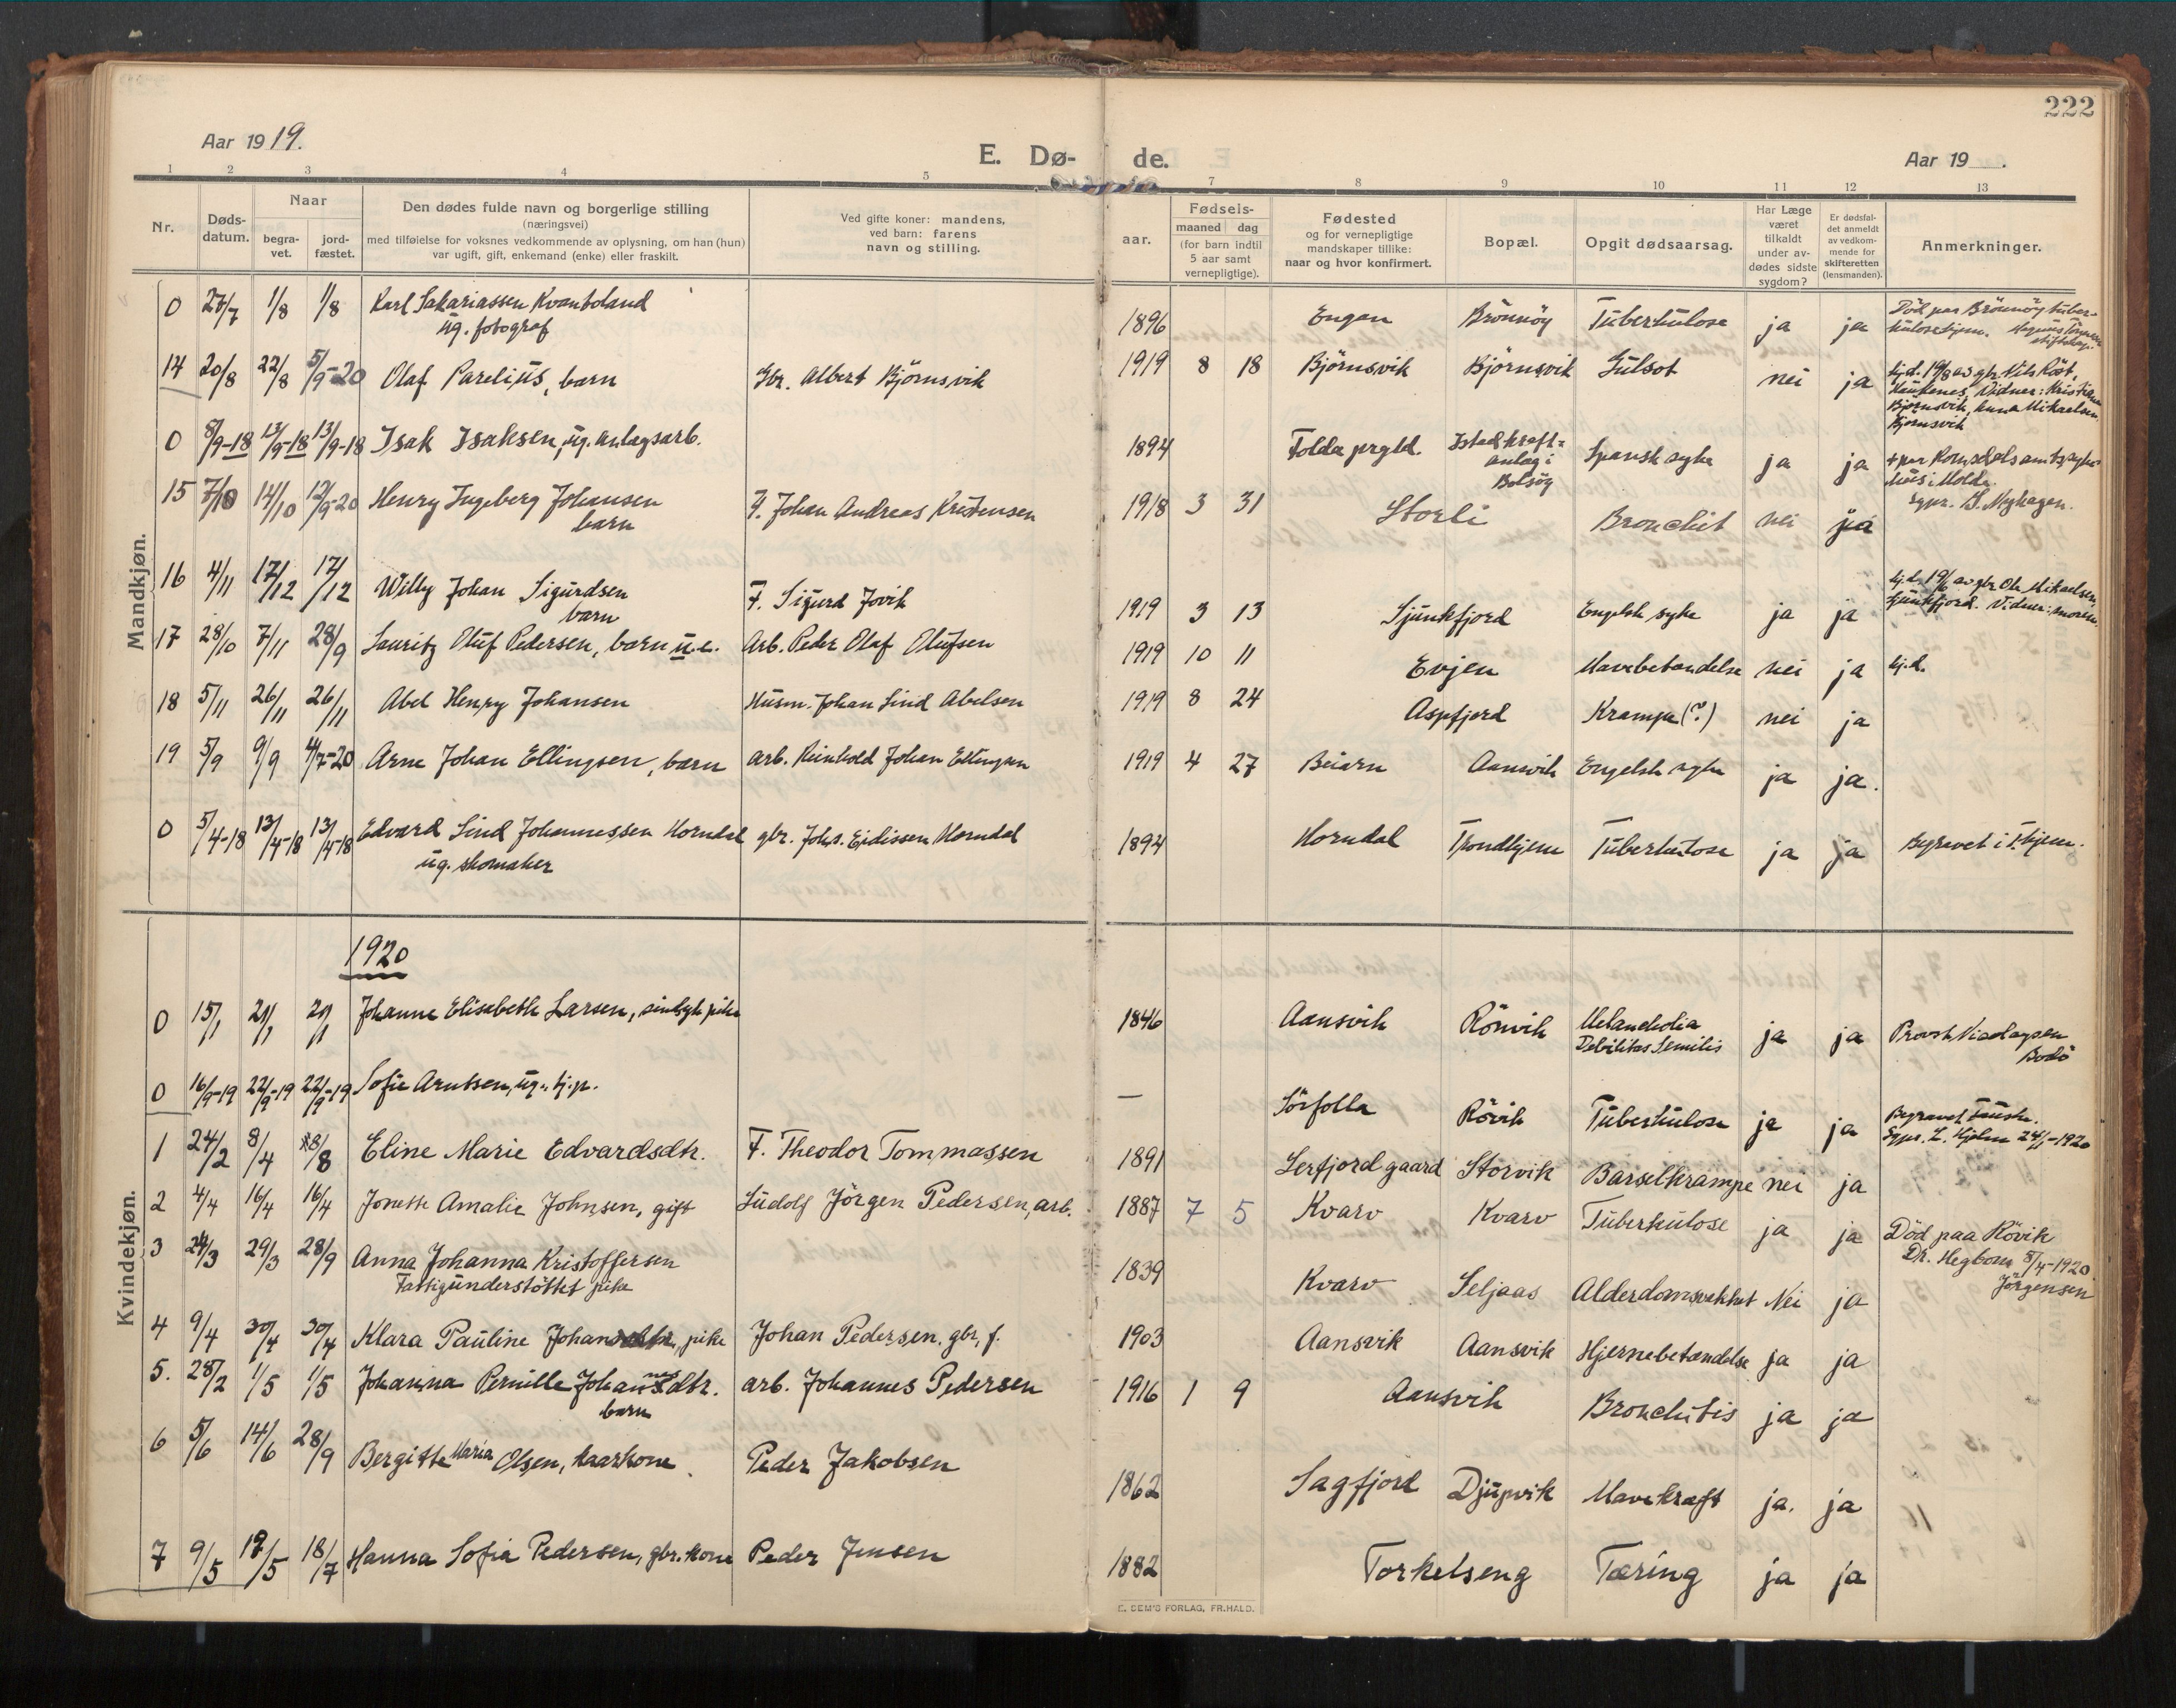 222
Aar 1919.
E. Dø- de.
Aar 19 .
1 2 3 4 5 6 7 8 9 10 11 12 13
Nr.
Døds-
datum.
Naar
begra-
vet.
jord-
fæstet.
Den dødes fulde navn og borgerlige stilling
(næringsvei)
med tilføielse for voksnes vedkommende av oplysning, om han (hun)
var ugift, gift, enkemand (enke) eller fraskilt.
Ved gifte koner: mandens,
ved barn: farens
navn og stilling.
aar.
Fødsels-
maaned dag
(for barn indtil
5 aar samt
vernepligtige).
Fødested
og for vernepligtige
mandskaper tillike:
naar og hvor konfirmert.
Bopæl.
Opgit dødsaarsag.
Har Læge
været
tilkaldt
under av-
dødes sidste
sygdom?
Er dødsfal-
det anmeldt
av vedkom-
mende for
skifteretten
(lensmanden).
Anmerkninger.
Mandkjøn.
0 27/7 1/8 1/8 Karl Sakariassen Kvantoland 1896 Engan Brönnöy Tuberkulose ja ja Död paa Brönnöy tuber-
ug. fotograf kulosehjem.
14 20/8 22/8 5/9-20 Olaf Parelius, barn Gbr. Albert Björnsvik 1919 8 18 Bjørnsvik Bjørnsvik Gulsot nei ja hj.d. 19/8 av gbr. Nils Röst,
Haukenes, Vidner: Kristiane
Bjørnsvik, Anna Mikaelsen,
Bjørnsvik
0 8/9-18 13/9-18 13/9-18 Isak Isaksen, ug. anlagsarb. 1894 Folda prgld. Istad kraft-
anlæg i
Bolsöy
Spansk syke ja ja + paa Romsdals amtssyke-
hus i Molde.
sgpr. S. Nyhagen.
15 7/10 14/10 12/9-20 Henry Ingeberg Johansen F. Johan Andreas Kristensen 1918 3 31 Storli Bronchit nei ja
barn
16 4/11 17/12 17/12 Willy Johan Sigurdsen F. Sigurd Jovik 1919 3 13 Sjunkfjord Engelsk syke ja ja hj.d. 19/6 av gbr. Ole Mikaelsen,
barn Sjunkfjord. Vidner: moren.
17 28/10 7/11 28/9 Lauritz Oluf Pedersen, barn u.e. Arb. Peder Olaf Olufsen 1919 10 11 Evjen Mavebetændelse nei ja hj.d.
18 5/11 26/11 26/11 Abel Henry Johansen Husm. Johan Lind Abelsen 1919 8 24 Aspfjord Krampe (?) nei ja
19 5/9 9/9 4/7-20 Arne Johan Ellingsen, barn arb. Reinhold Johan Ellingsen 1919 4 27 Beiarn Aansvik Engelsk syke ja ja.
0 5/4-18 13/4-18 13/4-18 Edvard Lind Johannessen Horndal gbr. Johs. Eidissen Horndal 1894 Horndal Trondhjem Tuberkulose ja ja Begravet i T.hjem.
ug. skomaker
Kvindekjøn.
1920
0 15/1 21/1 21/1 Johanne Elisabeth Larsen, sindsyk pike 1846 Aansvik Rönvik Melancholia
Debilitas Semilis
ja ja Provst Nicolaysen
Bodö
0 16/9-19 22/9-19 22/9-19 Sofie Arntsen, ug., tj.p. — Sörfolla Rövik Tuberkulose ja ja Begravet Fauske.
Sgpr. L. Hjelm 24/1-1920
1 24/2 8/4 8/8 Eline Marie Edvardsdtr. F. Theodor Tommassen 1891 Lerfjord gaard Storvik Barselkrampe nei ja
2 4/4 16/4 16/4 Jonette Amalie Johnsen, gift Ludolf Jörgen Pedersen, arb. 1887 7 5 Kvarv Kvarv Tuberkulose ja ja Död paa Rövik
Dr. Hegbom 8/4-1920
Jörgensen
3 24/3 29/3 28/9 Anna Johanna Kristoffersen 1839 Kvarv Seljaas Alderdomsvekket Nei ja
Fattigunderstöttet pike
4 9/4 30/4 30/4 Klara Pauline Johansdtr, pike Johan Pedersen. gbr, f. 1903 Aansvik Aansvik Hjernebetændelse ja ja
5. 28/2 1/5 1/5 Johanna Pernille Johannesdtr. arb. Johannes Pedersen 1916 1 9 Aansvik Bronchitis ja ja
barn
6 5/6 14/6 28/9 Bergitte Maria Olsen, kaarkone Peder Jakobsen 1862 Sagfjord Djupvik Mavekræft ja. ja
7 9/5 19/5 18/7 Hanna Sofia Pedersen, gbr. kone Peder Jensen 1882 Torkelseng Tæring ja ja
E. SEM'S FORLAG, FR.HALD.